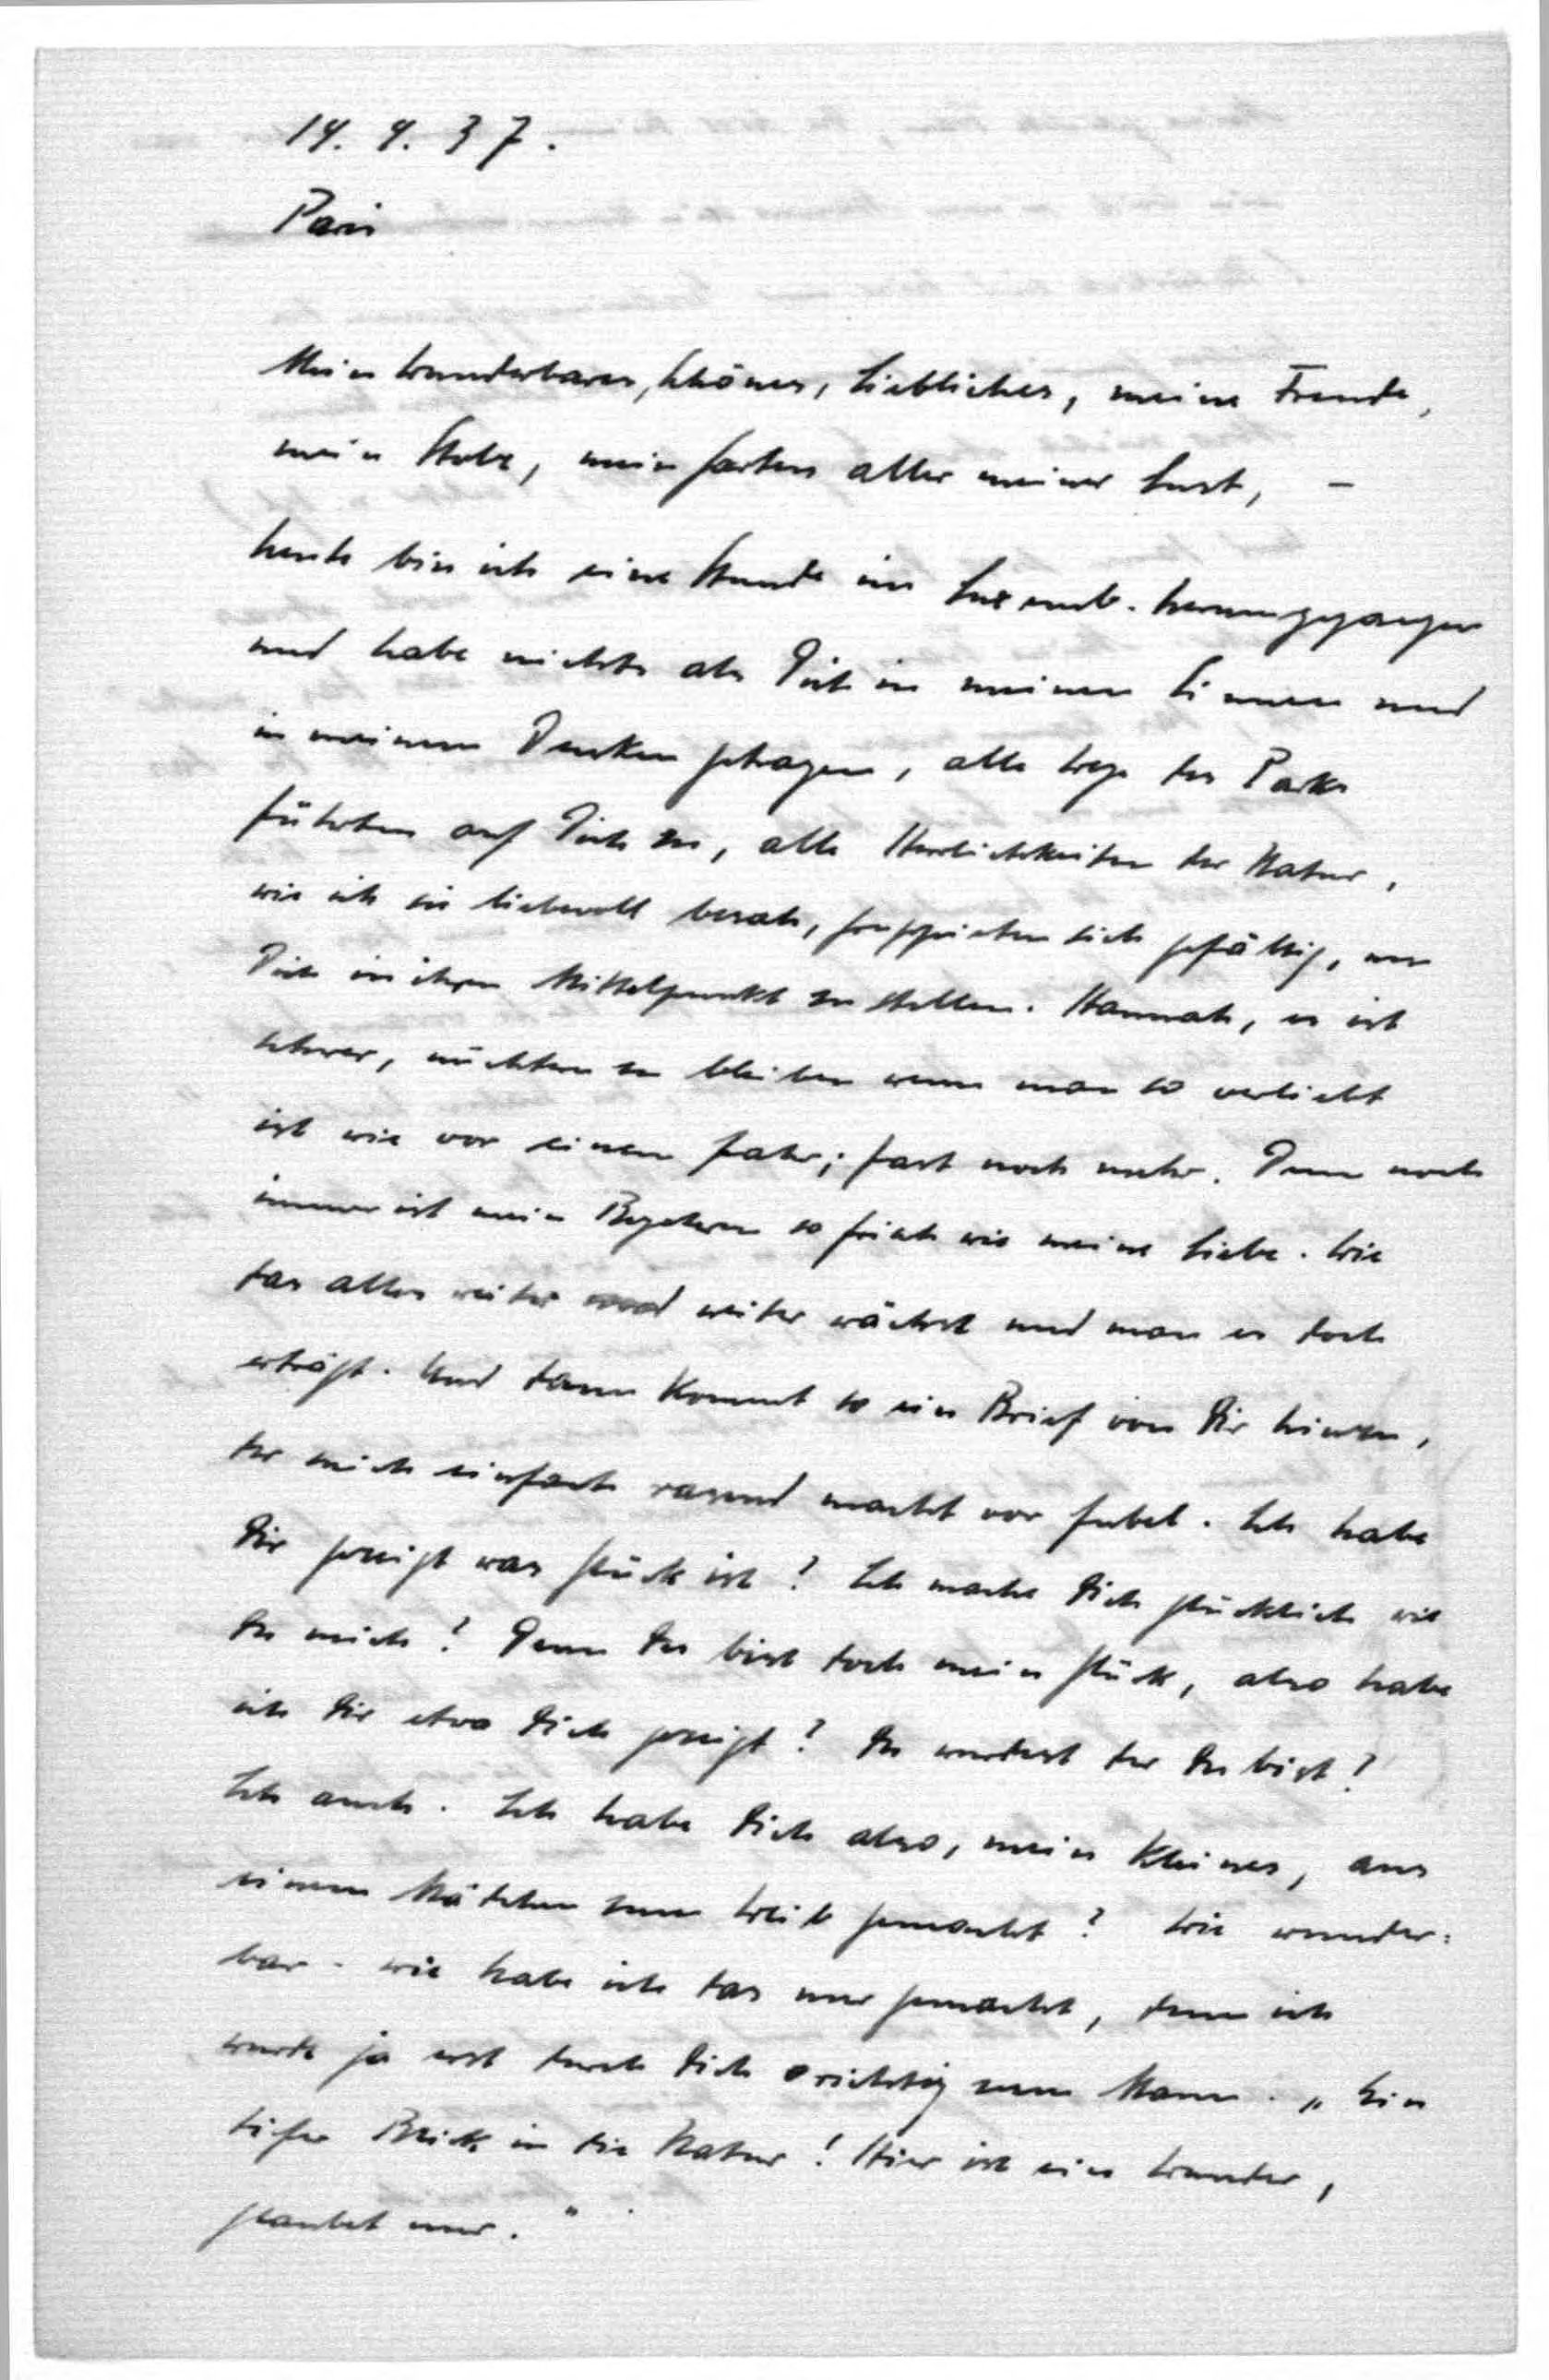 14. 9. 37.
Paris
Mein Wunderbares, Schönes, Liebliches, meine Freude,
mein Stolz, mein Garten aller meiner Lust, –
heute bin ich eine Stunde im Luxemb. herumgegangen
und habe nichts als Dich in meinen Sinnen und
in meinem Denken getragen, alle Wege des Parks
führten auf Dich zu, alle Herrlichkeiten der Natur,
wie ich sie liebevoll besah, gruppierten sich gefällig, um
Dich in ihren Mittelpunkt zu stellen. Hannah, es ist
schwer, nüchtern zu bleiben wenn man so verliebt
ist wie vor einem Jahr; fast noch mehr. Denn noch
immer ist mein Begehren so frisch wie meine Liebe. Wie
das alles weiter und weiter wächst und man es doch
erträgt. Und dann kommt so ein Brief von Dir hinzu,
der mich einfach rasend macht vor Jubel. Ich habe
Dir gezeigt was Glück ist? Ich mache Dich glücklich wie
Du mich? Denn Du bist doch mein Glück, also habe
ich Dir etwa Dich gezeigt? Du wurdest der Du bist?
Ich auch. Ich habe Dich also, mein Kleines, aus
einem Mädchen zum Weib gemacht? Wie wunder=
bar – wie habe ich das nur gemacht, denn ich
wurde ja erst durch Dich richtig zum Mann. „Ein
tiefer Blick in die Natur! Hier ist ein Wunder,
glaubet nur."